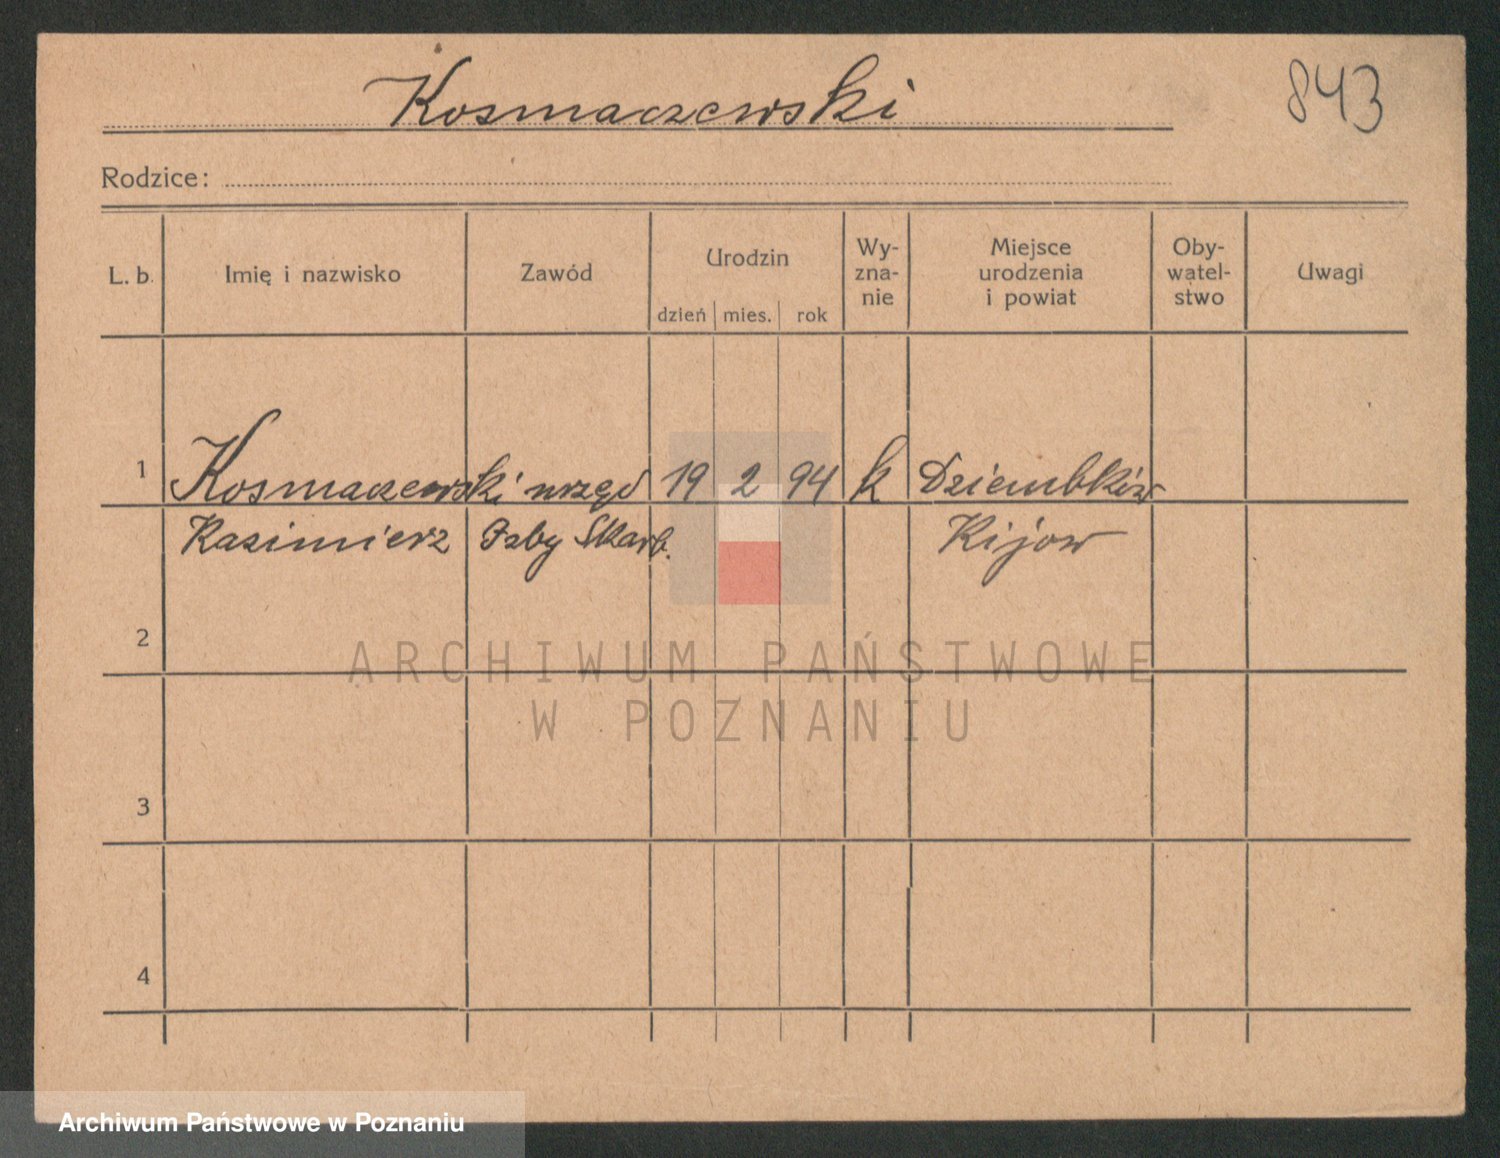 Kosmaczewski
843
Rodzice:
L. b. Imię i nazwisko Zawód Urodzin dzień mies. rok Wy-zna-nie Miejsce urodzenia i powiat Oby-watel-stwo Uwagi
1 Kosmaczewski urzęd 19 2 94 k Dziembków
Kazimierz Izby Skarb. Kijow
2
ARCHIWUM PAŃSTWOWE
W POZNANIU
3
4
Archiwum Państwowe w Poznaniu